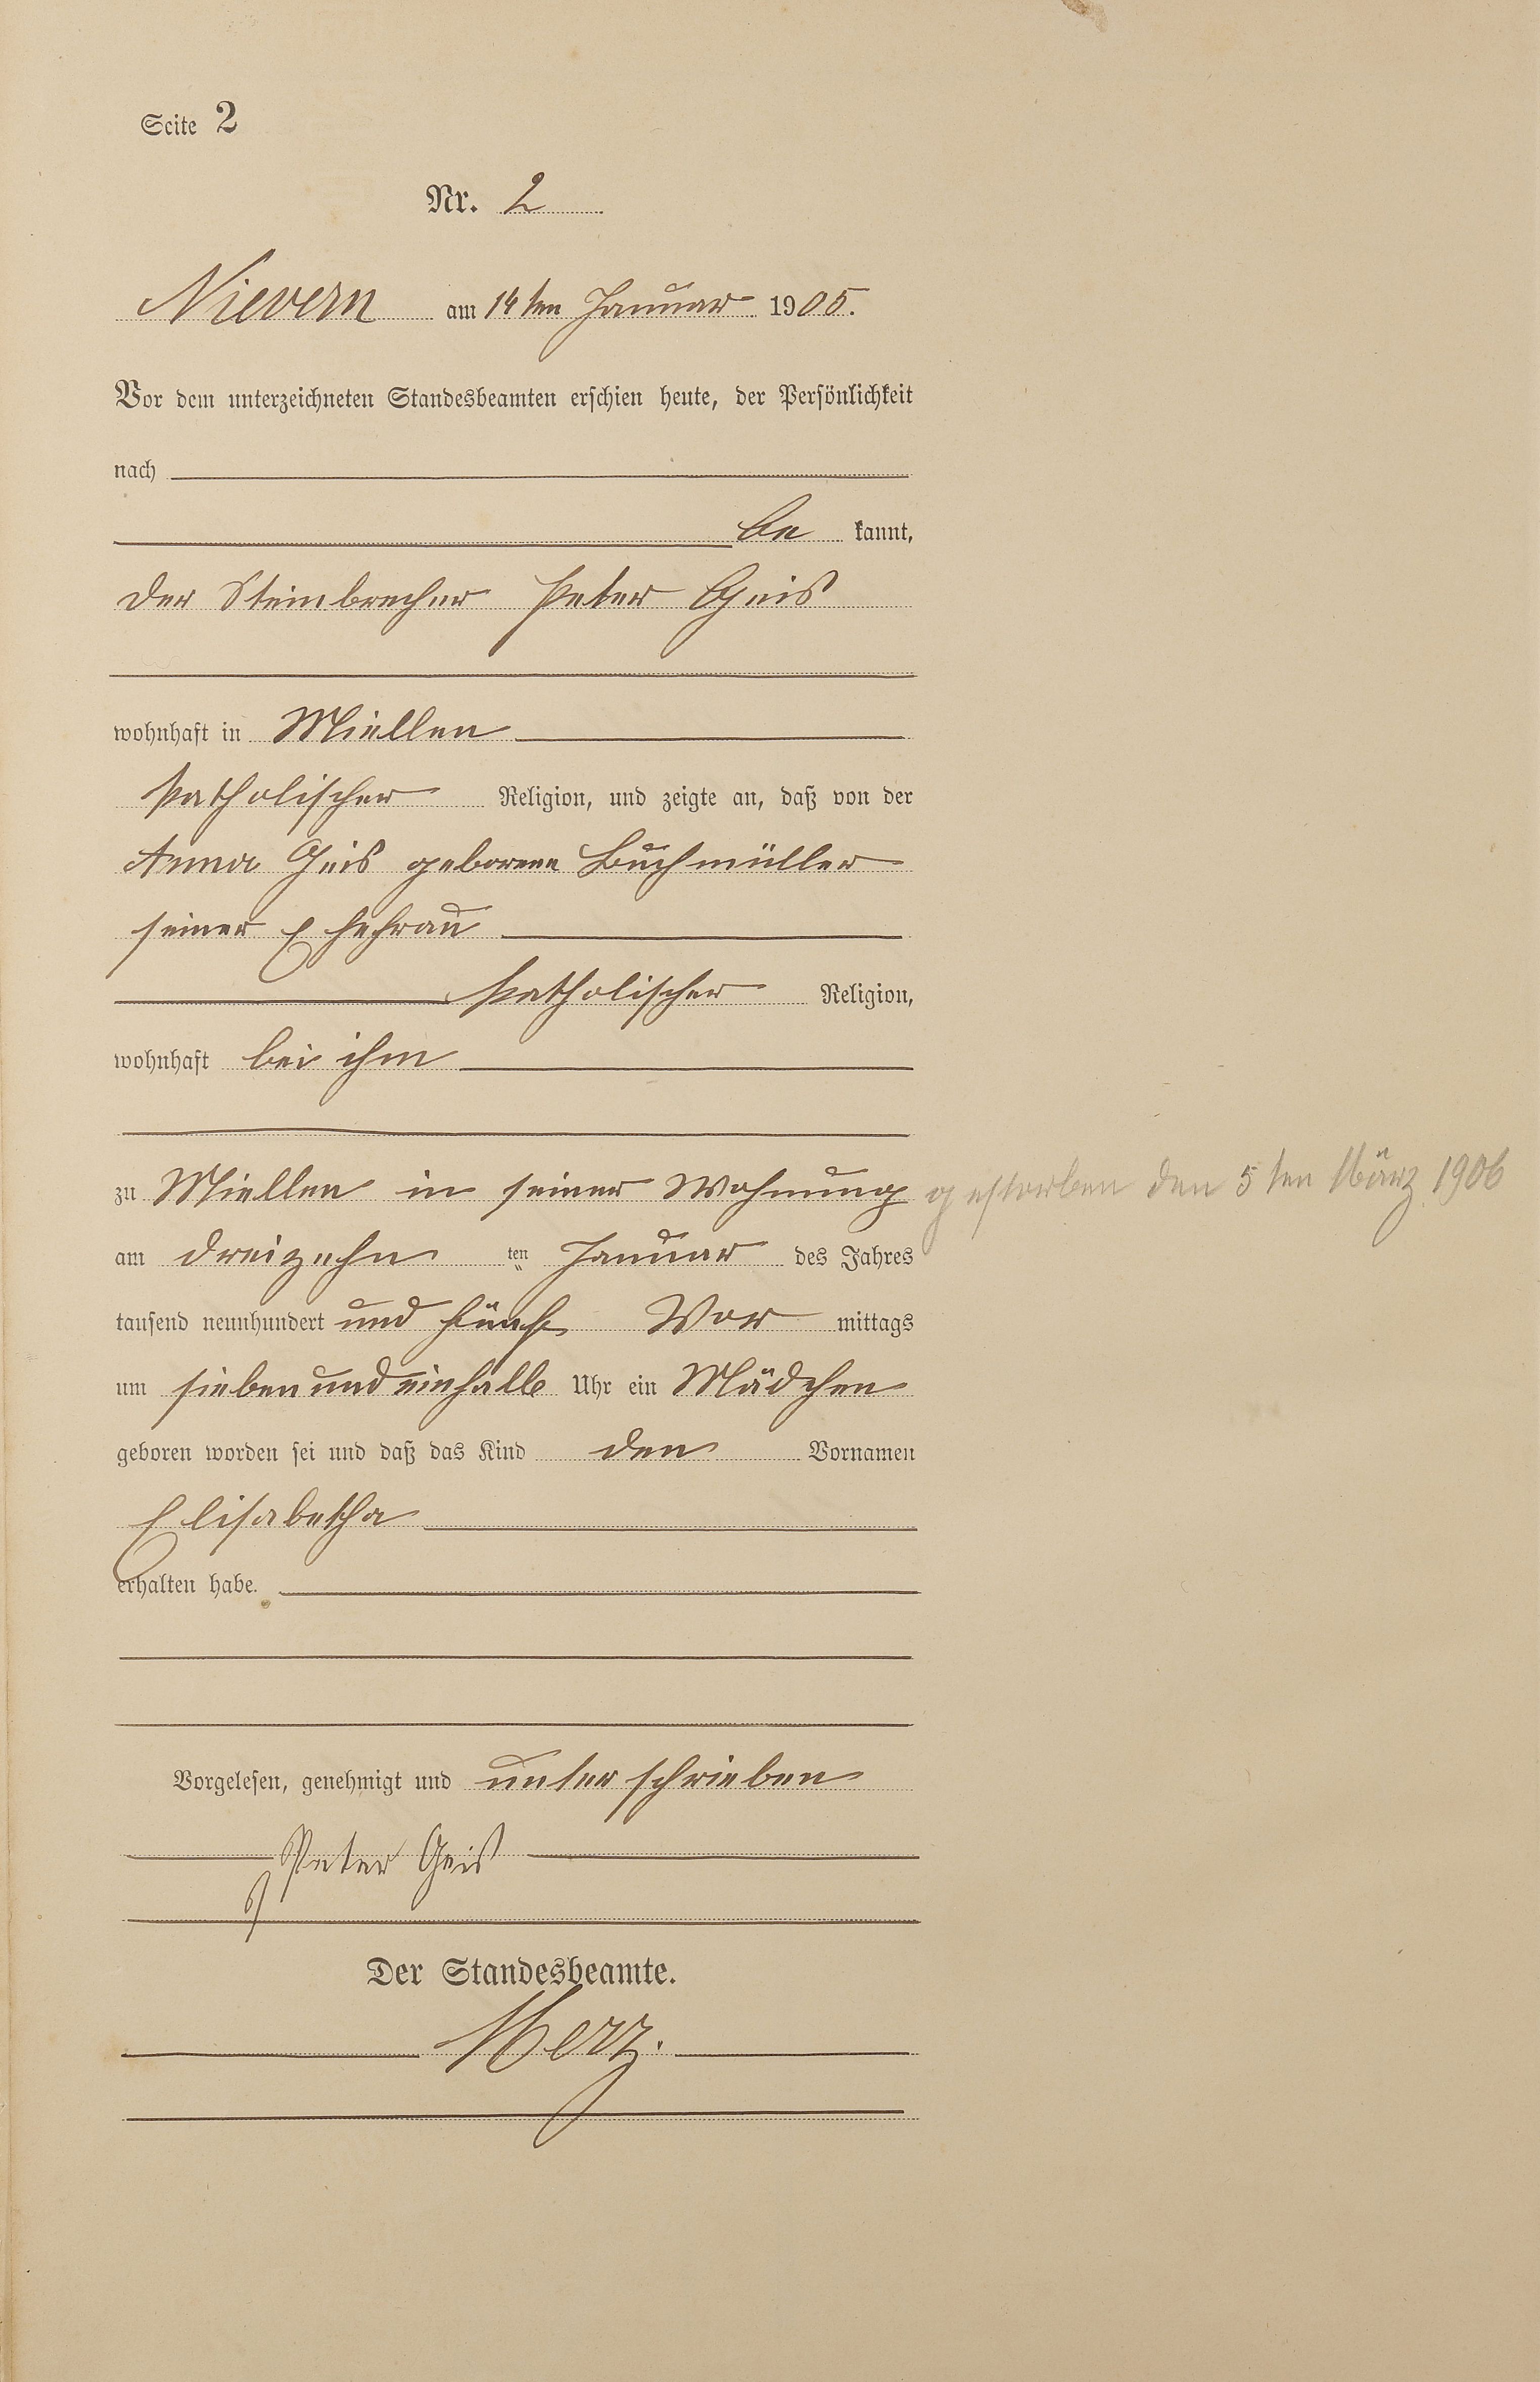 Seite 2
Nr. 2
Nievern am 14ten Januar 1905.
Vor dem unterzeichneten Standesbeamten erschien heute, der Persönlichkeit
nach
be kannt,
der Steinbrecher Peter Geis
wohnhaft in Miellen
katholischer Religion, und zeigte an, daß von der
Anna Geis geborene Buchmüller
seiner Ehefrau
katholischer Religion,
wohnhaft bei ihm
zu Miellen in seiner Wohnung gestorben den 5ten März 1906
am dreizehn ten Januar des Jahres
tausend neunhundert und fünf Vor mittags
um sieben und einhalb Uhr ein Mädchen
geboren worden sei und daß das Kind den Vornamen
Elisabetha
erhalten habe.
Vorgelesen, genehmigt und unterschrieben
Peter Geis
Der Standesbeamte.
Merz.